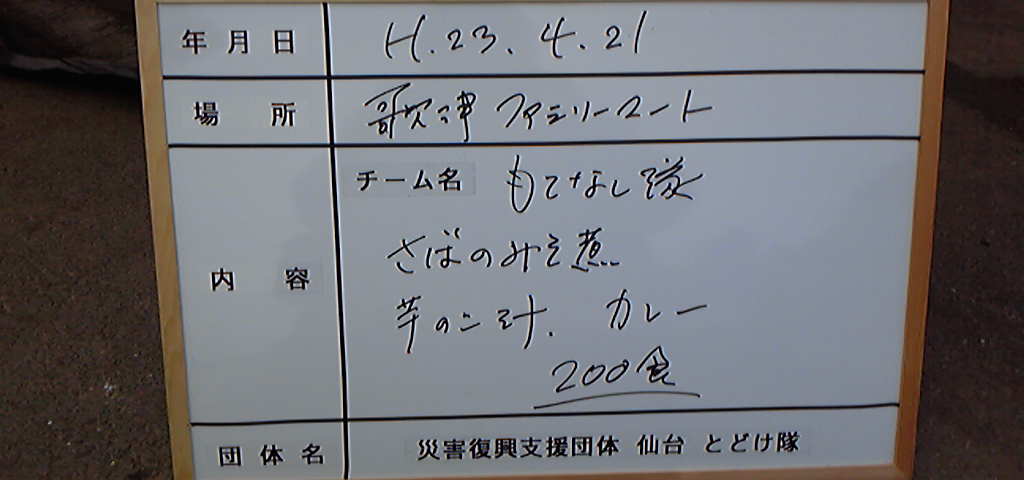 年月日 H.23.4.21
場所 歌津 ファミリーマート
チーム名 もてなし隊
さばのみそ煮
内容 芋のこ汁. カレー
200食
団体名 災害復興支援団体 仙台 とどけ隊